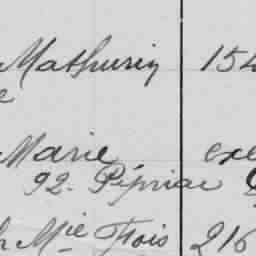 Mathurin 154
e
Marie exe
92. Pipriac
Mie Fois 216